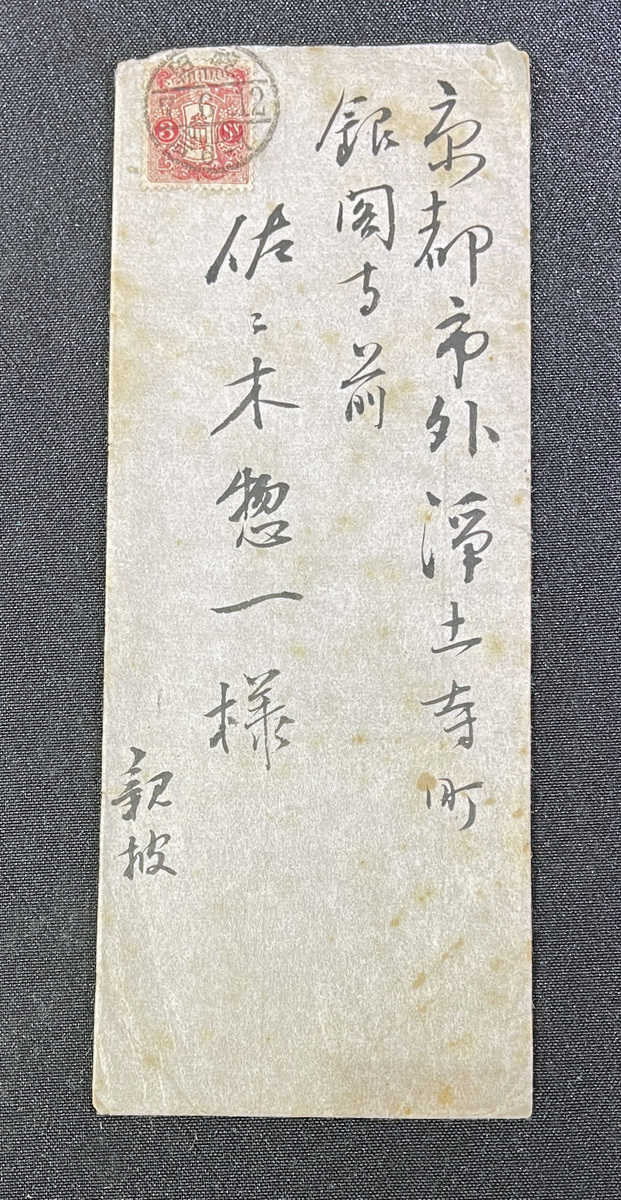 京都市外浄土寺町
銀閣寺前
佐々木惣一様
親披
3
7 6 12